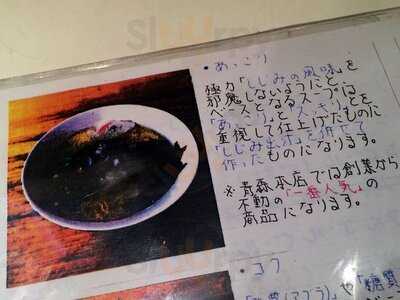 ・あっこり
極力「しじみの風味」を
邪魔しないようにと、
ベースとなるスープは
「あっさり」と「スッキリ」とを
重視して仕上げたものに
「しじみ出汁」を併せて
作ったものになります。
※青森本店では創業から
不動の「一番人気」の
商品になります。
・コク
や「糖質